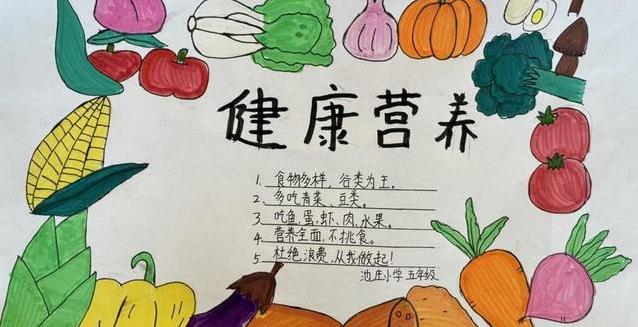 健康营养
1. 食物多样，谷类为主。
2. 多吃青菜、豆类。
3. 吃鱼、蛋、虾、肉、水果。
4. 营养全面，不挑食。
5. 杜绝浪费，从我做起！
池庄小学 五年级